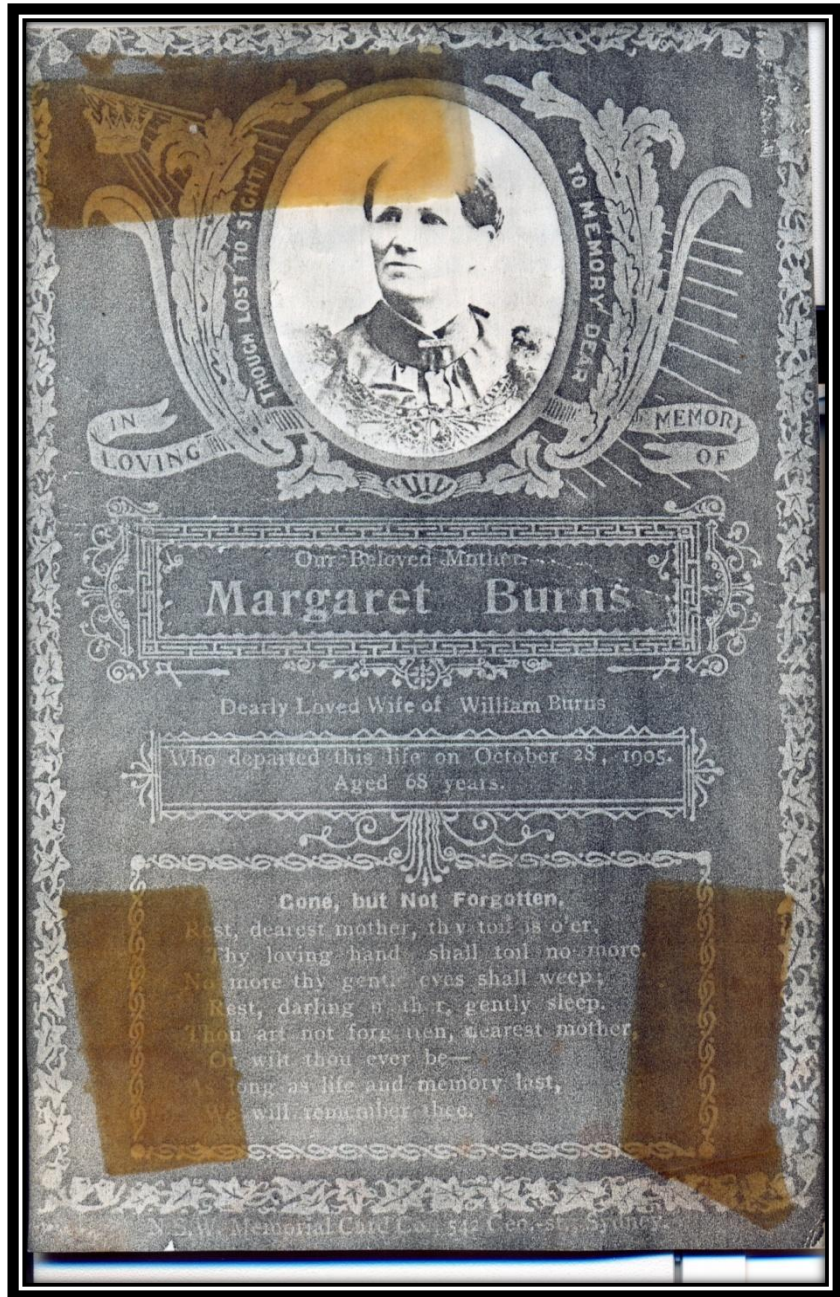 THOUGH LOST TO SIGHT
TO MEMORY DEAR
IN LOVING
MEMORY OF
Our Beloved Mother
Margaret Burns
Dearly Loved Wife of William Burns
Who departed this life on October 28, 1905.
Aged 68 years.
Gone, but Not Forgotten.
Rest, dearest mother, thy toil is o'er,
Thy loving hand shall toil no more,
No more thy gentle eyes shall weep;
Rest, darling mother, gently sleep.
Thou art not forgotten, dearest mother,
Or wilt thou ever be—
As long as life and memory last,
We will remember thee.
N.S.W. Memorial Card Co., 542 Geo.-st., Sydney.